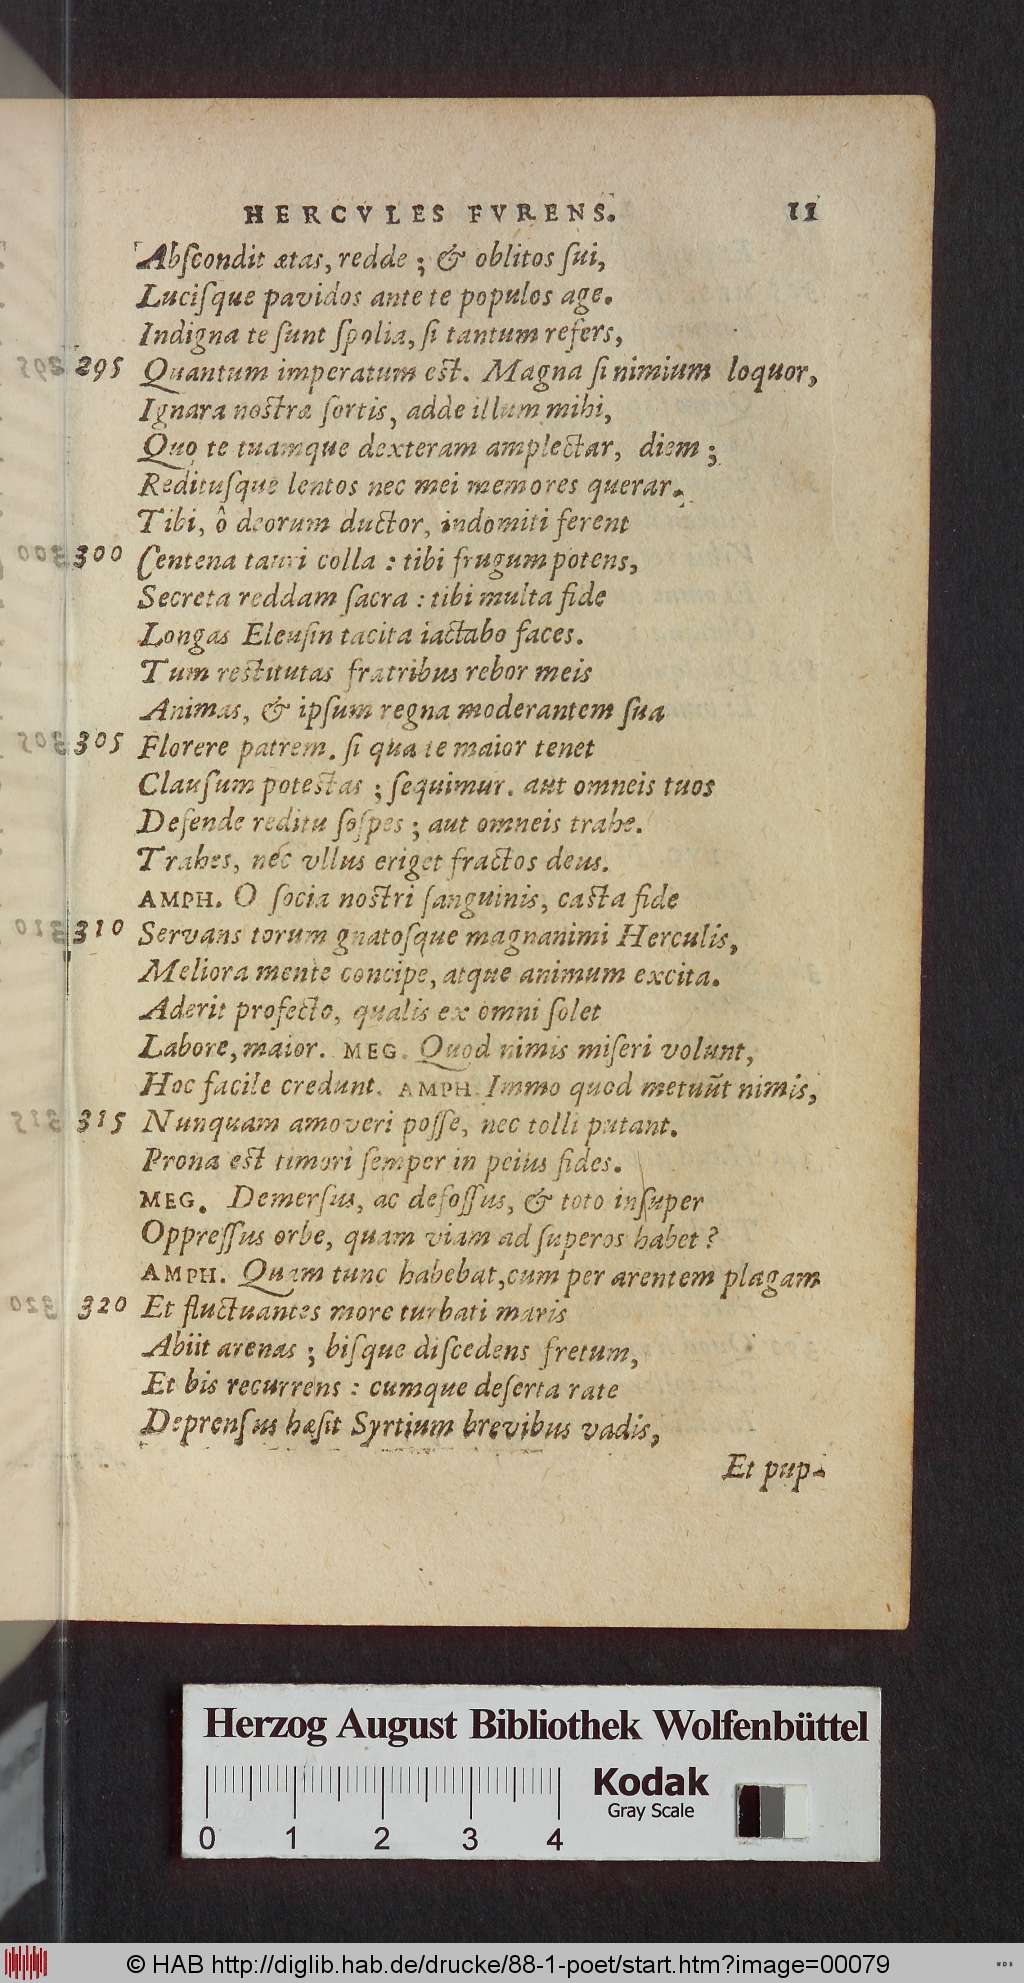 HERCVLES FVRENS. 11
Abſcondit ætas, redde ; & oblitos ſui,
Luciſque pavidos ante te populos age.
Indigna te ſunt ſpolia, ſi tantum refers,
295 Quantum imperatum est. Magna ſi nimium loquor,
Ignara nostræ ſortis, adde illum mihi,
Quo te tuamque dexteram amplectar, diem ;
Redituſque lentos nec mei memores querar.
Tibi, ô deorum ductor, indomiti ferent
300 Centena tauri colla : tibi frugum potens,
Secreta reddam ſacra : tibi multa fide
Longas Eleuſin tacita iactabo faces.
Tum restitutas fratribus rebor meis
Animas, & ipſum regna moderantem ſua
305 Florere patrem. ſi qua te maior tenet
Clauſum potestas ; ſequimur. aut omneis tuos
Defende reditu ſoſpes ; aut omneis trahe.
Trahes, nec vllus eriget fractos deus.
AMPH. O ſocia nostri ſanguinis, casta fide
310 Servans torum gnatoſque magnanimi Herculis,
Meliora mente concipe, atque animum excita.
Aderit profecto, qualis ex omni ſolet
Labore, maior. MEG. Quod nimis miſeri volunt,
Hoc facile credunt. AMPH. Immo quod metuūt nimis,
315 Nunquam amoveri poſſe, nec tolli putant.
Prona est timori ſemper in peius fides.
MEG. Demerſus, ac defoſſus, & toto inſuper
Oppreſſus orbe, quam viam ad ſuperos habet ?
AMPH. Quam tunc habebat, cum per arentem plagam
320 Et fluctuantes more turbati maris
Abiit arenas ; biſque diſcedens fretum,
Et bis recurrens : cumque deſerta rate
Deprenſus hæſit Syrtium brevibus vadis,
Et pup-
Herzog August Bibliothek Wolfenbüttel
Kodak
Gray Scale
0 1 2 3 4
© HAB http://diglib.hab.de/drucke/88-1-poet/start.htm?image=00079